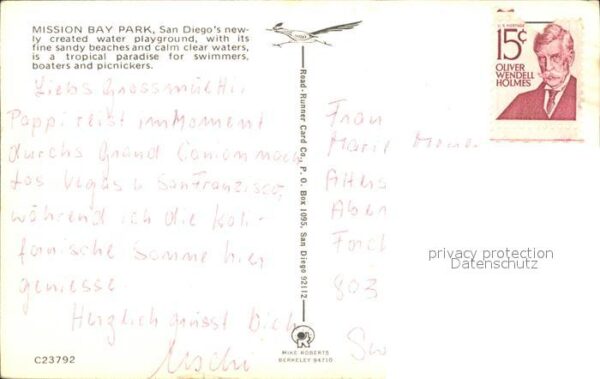 MISSION BAY PARK, San Diego's new-
ly created water playground, with its
fine sandy beaches and calm clear waters,
is a tropical paradise for swimmers,
boaters and picnickers.
Liebs Grossmuetti,
Pappi reist im Moment
durchs Grand Canion nach
Las Vegas u San Franzisco,
während ich die kali-
fornische Sonne hier
geniesse
Herzlich grüsst Dich
Uschi
C23792
Road-Runner Card Co., P. O. Box 1095, San Diego 92112
MIKE ROBERTS
BERKELEY 94710
U.S. POSTAGE
15¢
OLIVER
WENDELL
HOLMES
Frau
Marie
Alters
Forch
803
privacy protection
Datenschutz